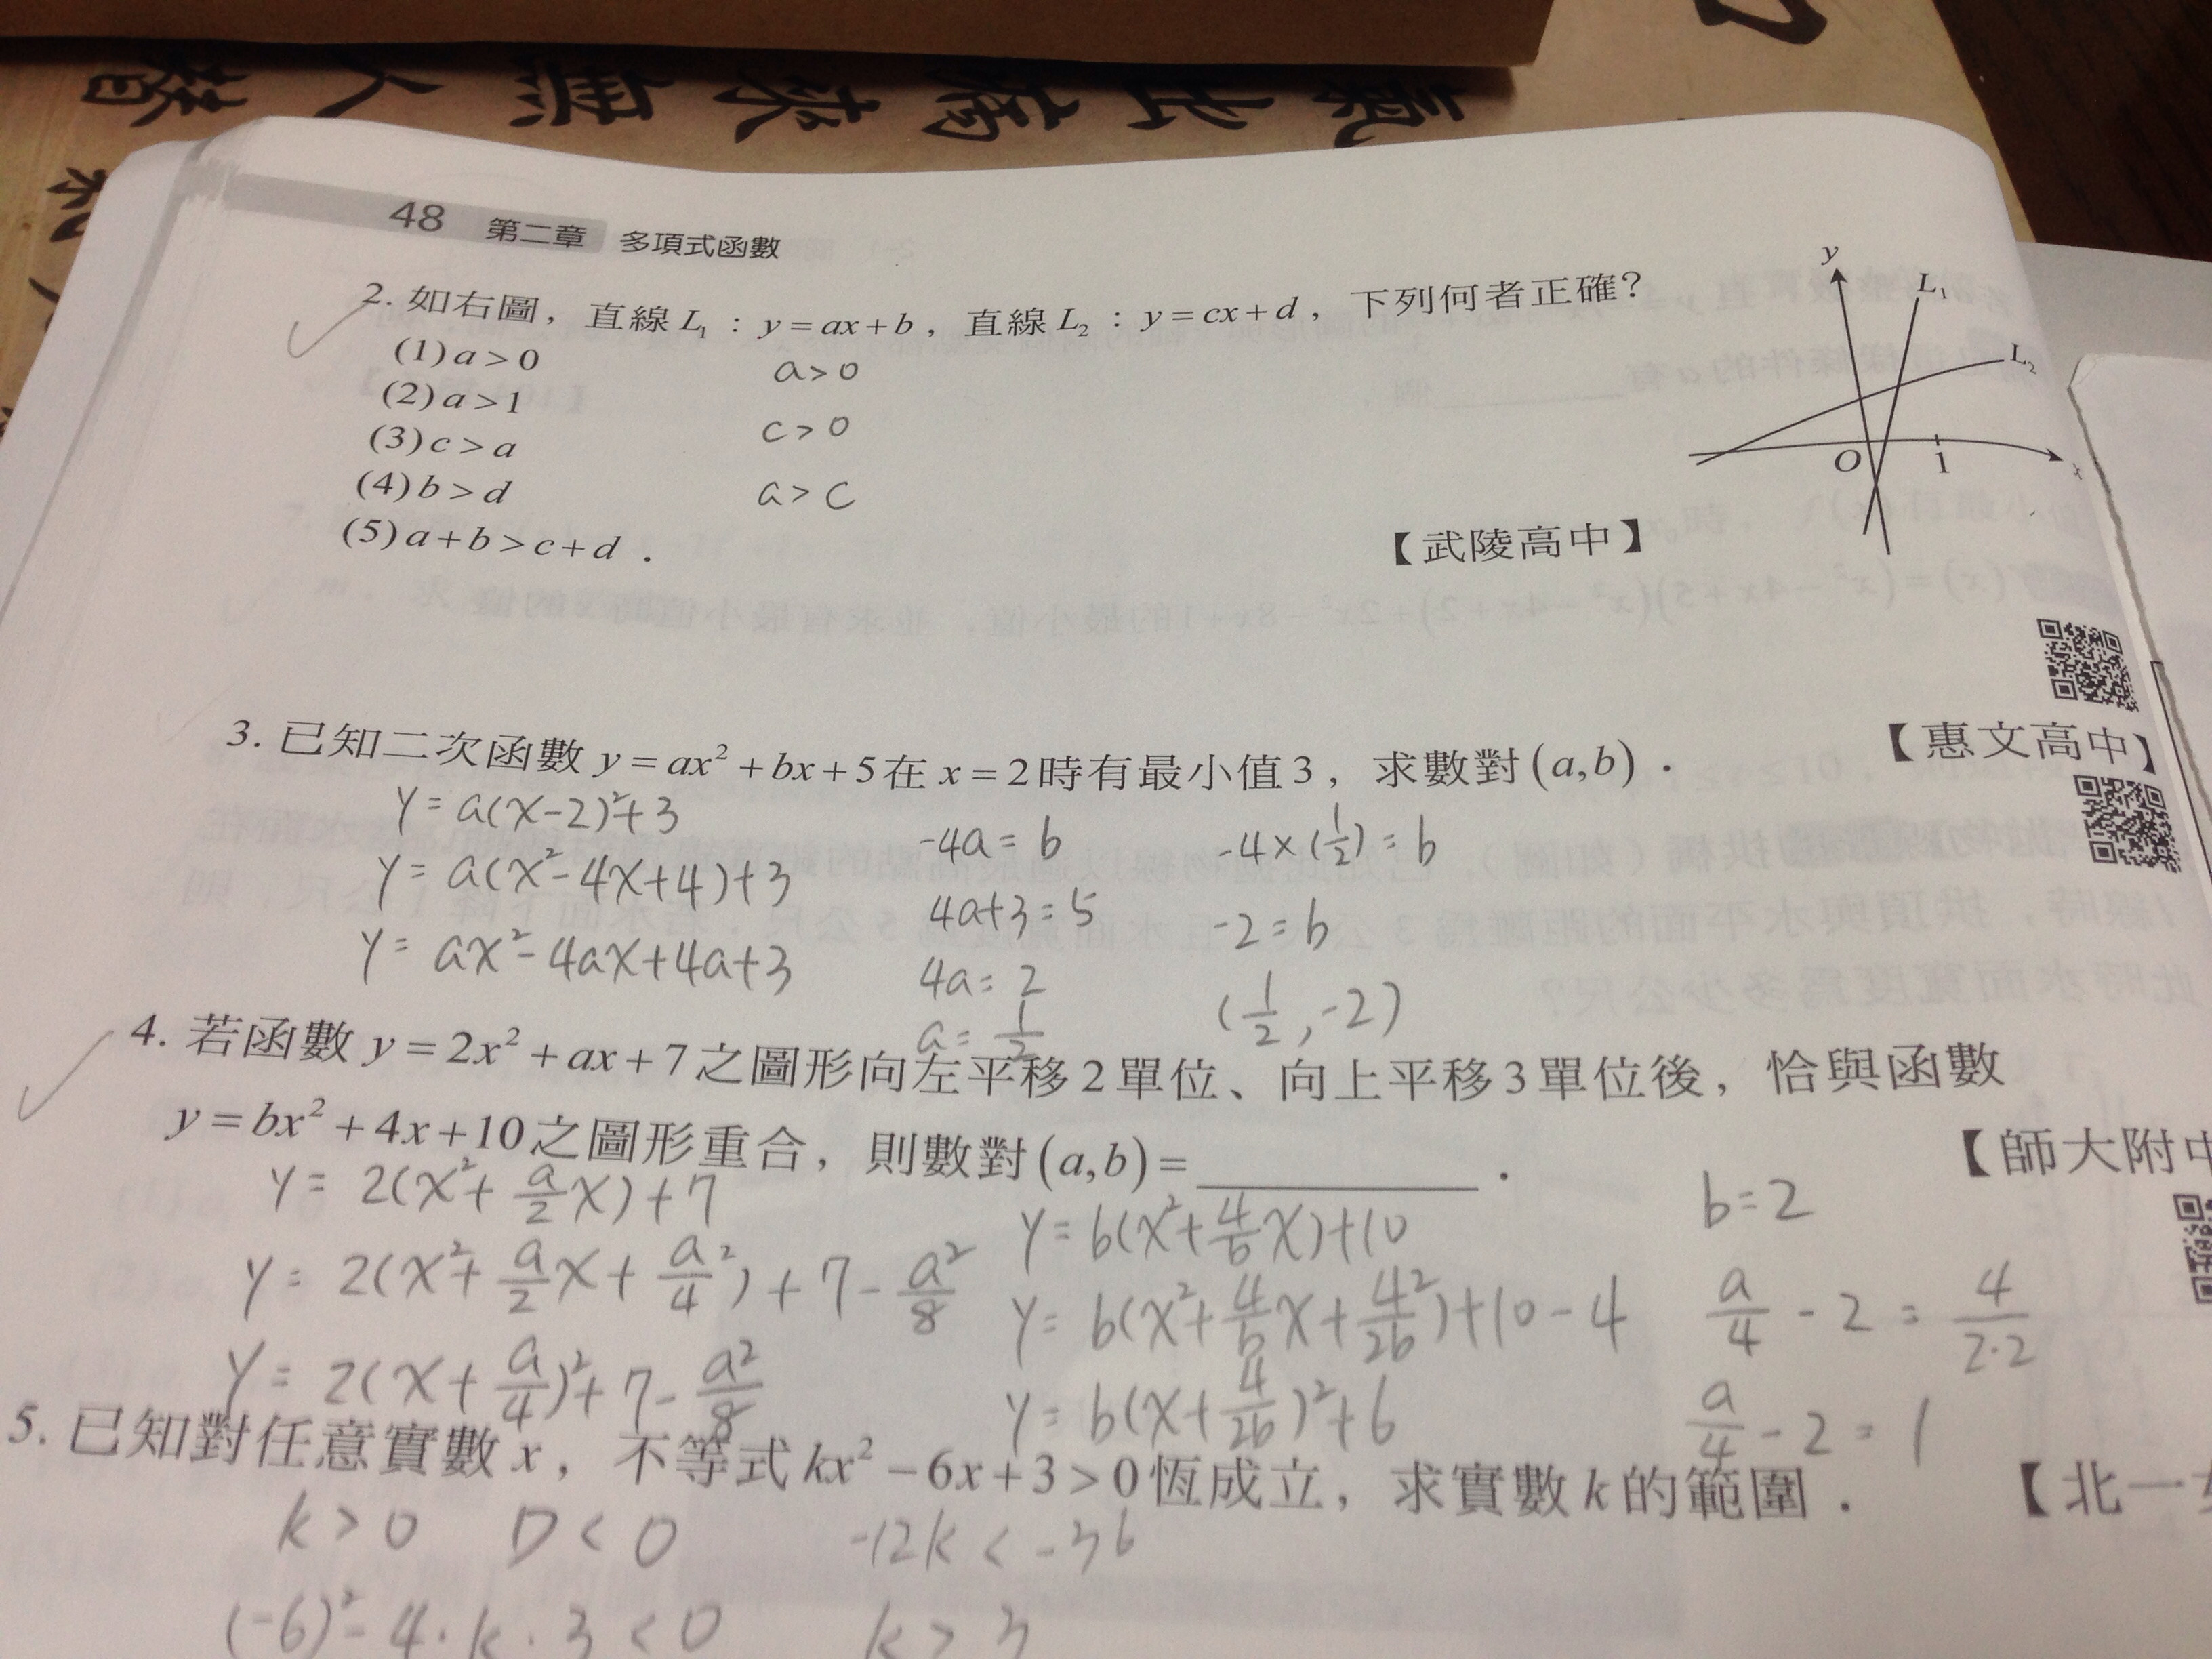 氣 出 病 求 無 人 替
48 第二章 多項式函數
2. 如右圖，直線 L₁：y = ax + b，直線 L₂：y = cx + d，下列何者正確？
(1) a > 0
(2) a > 1
(3) c > a
(4) b > d
(5) a + b > c + d．
a > 0
c > 0
a > c
【武陵高中】
y
L₁
L₂
O
1
x
3. 已知二次函數 y = ax² + bx + 5 在 x = 2 時有最小值 3，求數對 (a,b)．
【惠文高中】
y = a(x-2)²+3
y = a(x²-4x+4)+3
y = ax²-4ax+4a+3
-4a = b
4a+3 = 5
4a = 2
a = 1/2
-4×(1/2) = b
-2 = b
(1/2, -2)
4. 若函數 y = 2x² + ax + 7 之圖形向左平移 2 單位、向上平移 3 單位後，恰與函數
y = bx² + 4x + 10 之圖形重合，則數對 (a,b) = ________．
【師大附中
y = 2(x²+a/2 x)+7
y = 2(x²+a/2 x+a/4²)+7-a²/8
y = 2(x+a/4)²+7-a²/8
y = b(x²+4/b x)+10
y = b(x²+4/b x+4/2b²)+10-4
y = b(x+4/2b)²+6
b = 2
a/4 - 2 = 4/2·2
a/4 - 2 = 1
5. 已知對任意實數 x，不等式 kx² - 6x + 3 > 0 恆成立，求實數 k 的範圍．
【北一女
k > 0 D < 0
(-6)²-4·k·3 < 0
-12k < -36
k > 3